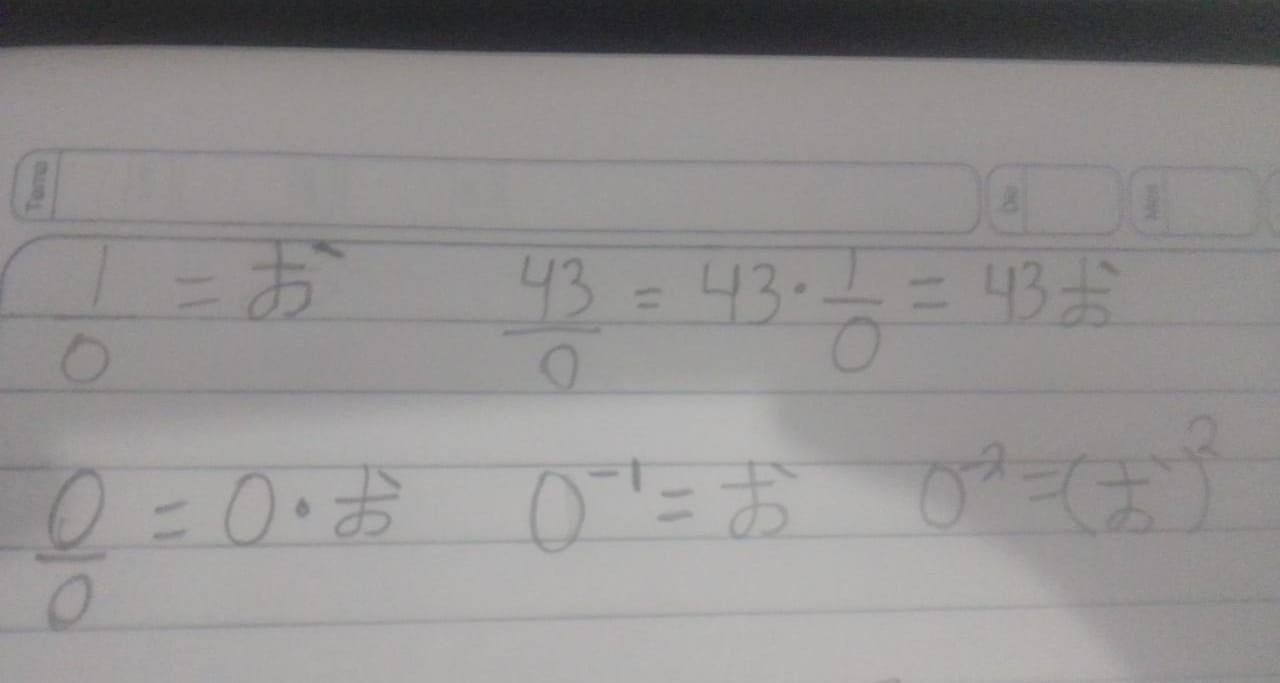 Tema Día Mes
1/0 = お 43/0 = 43 · 1/0 = 43お
0/0 = 0 · お 0⁻¹ = お 0⁻² = (お)²